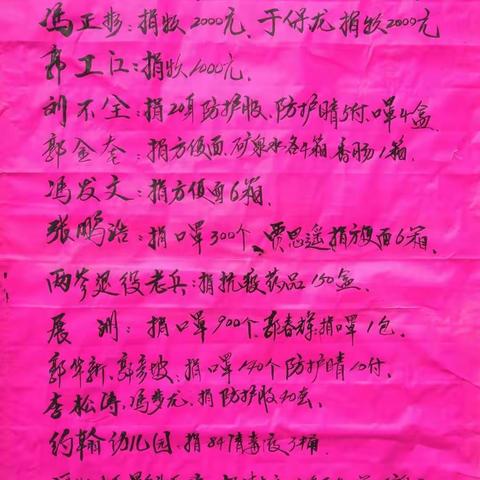 冯正彬：捐款2000元、于保龙捐款2000元
郭卫江：捐款1000元.
刘不全：捐20身防护服、防护睛5付、口罩4盒
郭金奎：捐方便面、矿泉水各4箱 香肠1箱.
冯发文：捐方便面6箱.
张鹏浩：捐口罩300个、贾思遥捐方便面6箱.
两岑退役老兵：捐抗疫药品150盒.
展洲：捐口罩900个、郭春 捐口罩1包.
郭华新、郭彦坡：捐口罩140个防护睛10付.
李松涛、冯梦龙、捐防护服40套.
约翰幼儿园、捐84消毒液3桶.